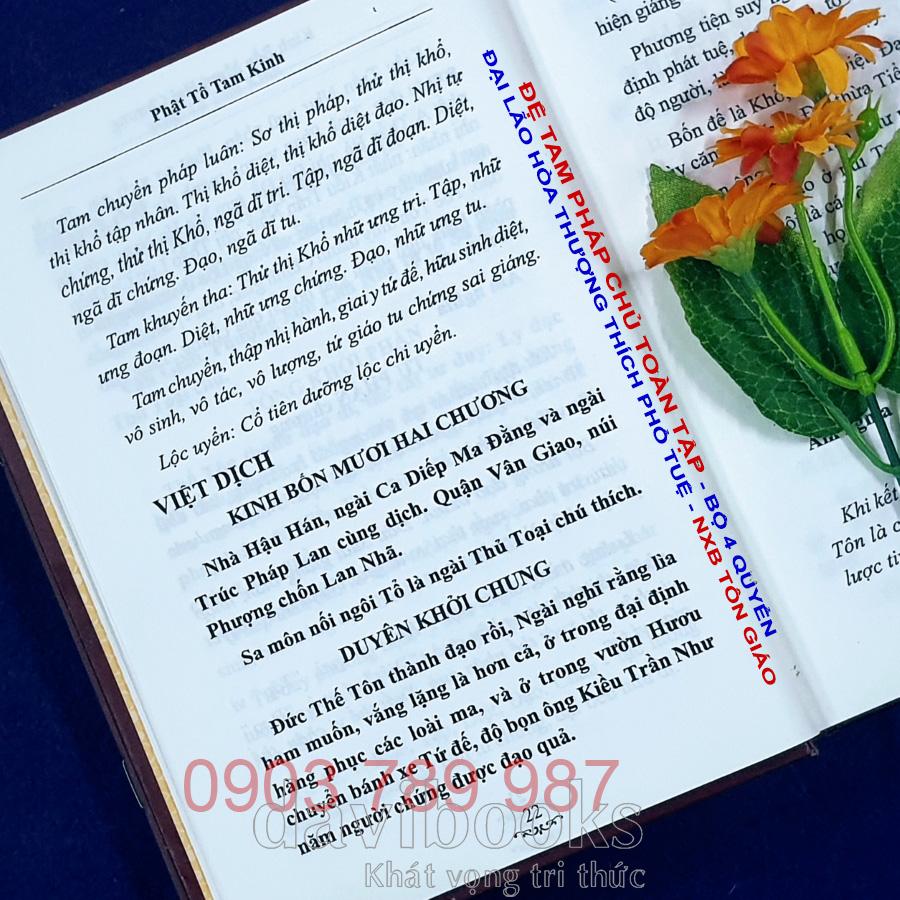 Phật Tổ Tam Kinh
Tam chuyển pháp luân: Sơ thị pháp, thử thị khổ,
thị khổ tập nhân. Thị khổ diệt, thị khổ diệt đạo. Nhị tự
chứng, thử thị Khổ, ngã dĩ tri. Tập, ngã dĩ đoạn. Diệt,
ngã dĩ chứng. Đạo, ngã dĩ tu.
Tam khuyến tha: Thử thị Khổ như ưng tri. Tập, như
ưng đoạn. Diệt, như ưng chứng. Đạo, như ưng tu.
Tam chuyển, thập nhị hành, giai y tứ đế, hữu sinh diệt,
vô sinh, vô tác, vô lượng, tứ giáo tu chứng sai giáng.
Lộc uyển: Cổ tiên dưỡng lộc chi uyển.
VIỆT DỊCH
KINH BỐN MƯƠI HAI CHƯƠNG
Nhà Hậu Hán, ngài Ca Diếp Ma Đằng và ngài
Trúc Pháp Lan cùng dịch. Quận Vân Giao, núi
Phượng chốn Lan Nhã.
Sa môn nối ngôi Tổ là ngài Thủ Toại chú thích.
DUYÊN KHỞI CHUNG
Đức Thế Tôn thành đạo rồi, Ngài nghĩ rằng lìa
ham muốn, vắng lặng là hơn cả, ở trong đại định
hàng phục các loài ma, và ở trong vườn Hươu
chuyển bánh xe Tứ đế, độ bọn ông Kiều Trần Như
năm người chứng được đạo quả.
22
ĐỆ TAM PHÁP CHỦ TOÀN TẬP - BỘ 4 QUYỂN
ĐẠI LÃO HÒA THƯỢNG THÍCH PHỔ TUỆ - NXB TÔN GIÁO
hiện giảng
Phương tiện suy ng
định phát tuệ,
độ người, là
Bốn đế là Khổ,
Khi kết
Tôn là c
lược tir
0903 789 987
davibooks
Khát vọng tri thức